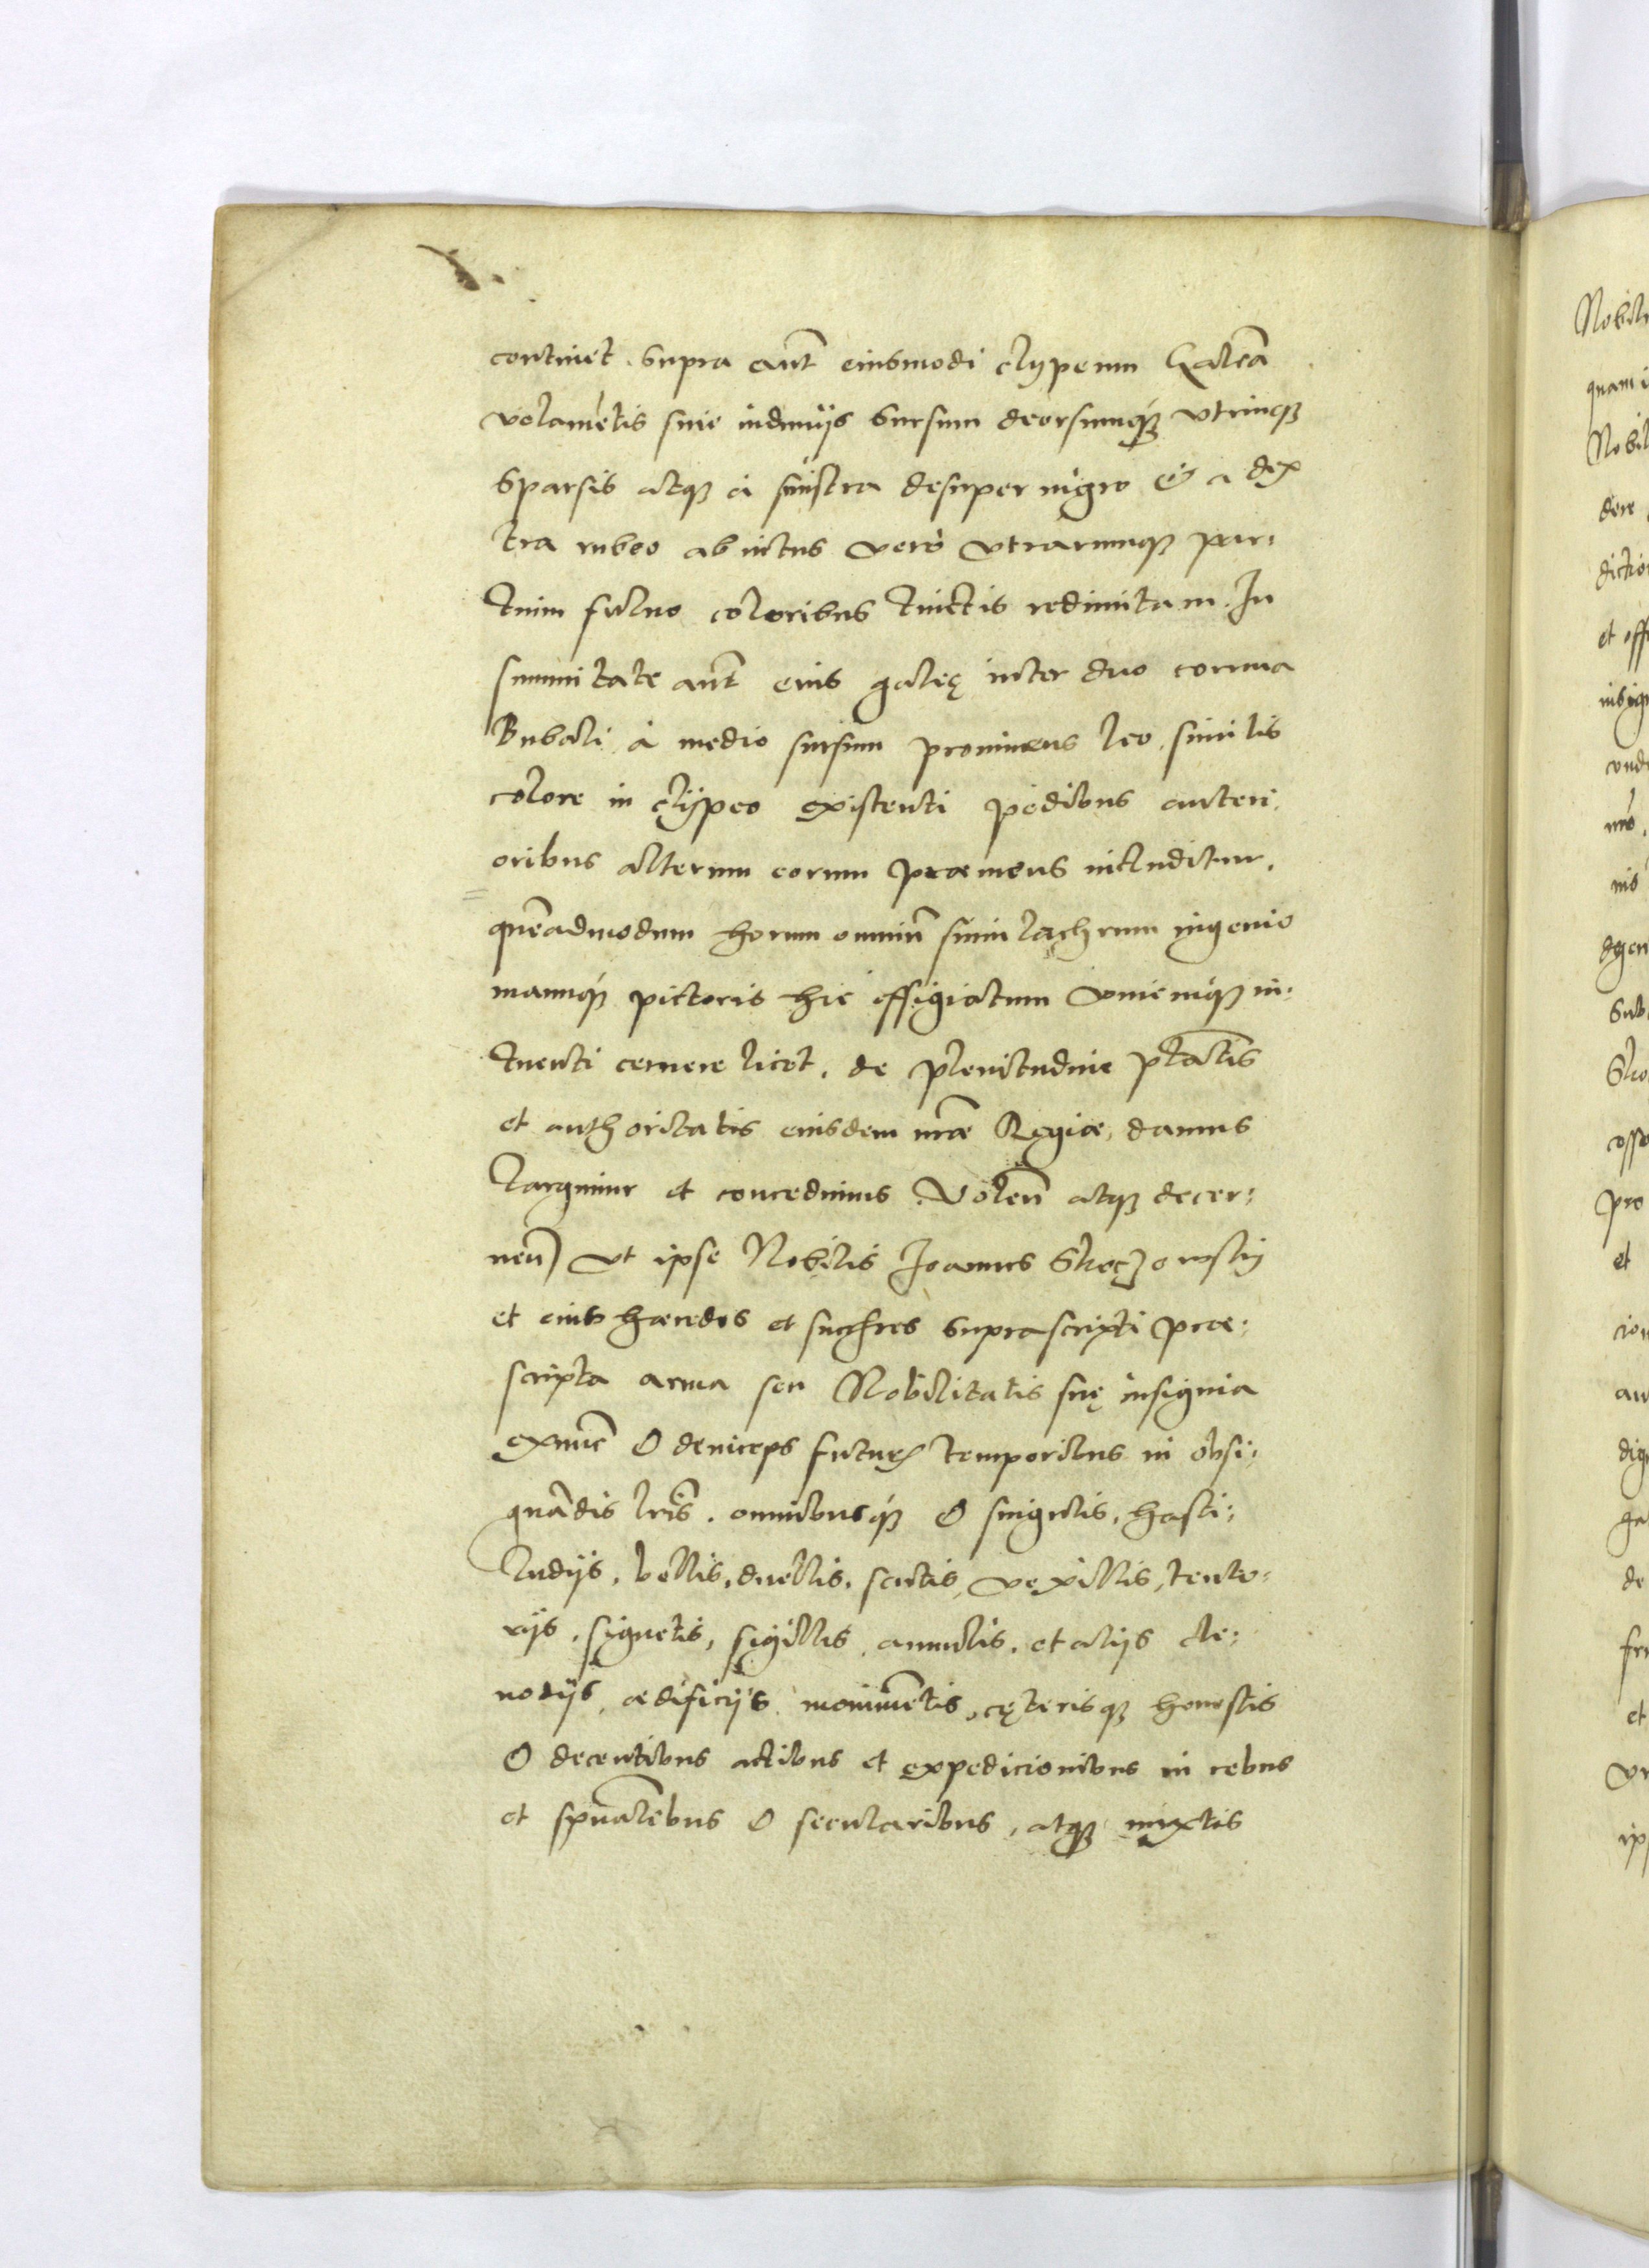 continet. Supra aut̃ eiusmodi clypeum Galeã
volamẽtis sine induuijs Sursum deorsumq́ʒ vtrinqʒ
Sparsis atqʒ á sinistra desuper nigro & a dex
tra rubeo ab intus verò vtrarumqʒ par:
tium fuluo coloribus tinctis redimitam. In
summitate aut̃ eius galeę inter duo cornua
Bubali à medio sursum prominens leo, similis
colore in clypeo existenti pedibus anteri,
oribus alterum cornu præmens includitur.
quẽadmodum horum omniũ simulachrum ingenio
manuq́ʒ pictoris hic effigiatum vnicuiq́ʒ in:
tuenti cernere licet, de plenitudine ptãtis
et authoritatis eiusdem nr̃æ Regiæ, damus
largimur et concedimus. Voleñ atqʒ decer:
neñ vt ipse Nobilis Joannes Skoczowsky
et eius hæredes et succ̃res suprascripti præ:
scripta arma seu Nobilitatis suę insignia
exnũc & deinceps futuris temporibus in obsi:
gnãdis lr̃is. omnibusq́ʒ & singulis, hasti:
ludijs, bellis, duellis, scutis, vexillis, tento:
rijs, signetis, sigillis, annulis, et alijs cle:
nodijs, ædificijs monimẽtis, cęterisqʒ honestis
& decentibus actibus et expedicionibus in rebus
et spũalibus & secularibus, atqʒ mixtis